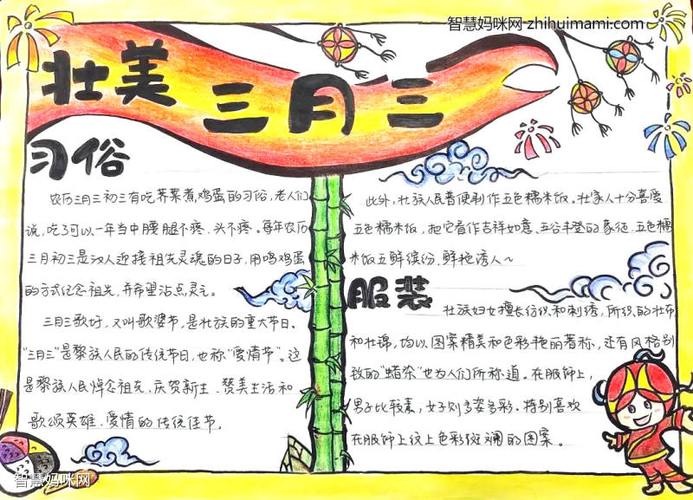 智慧妈咪网-zhihuimami.com
壮美 三月三
习俗
农历三月三初三有吃荠菜煮鸡蛋的习俗,老人们
说,吃了可以一年当中腰腿不疼、头不疼。每年农历
三月初三是汉人迎接祖先灵魂的日子,用鸣鸡蛋
的方式纪念祖先,并希望沾点灵气。
三月三歌好,又叫歌婆节,是壮族的重大节日。
"三月三"是黎族人民的传统节日,也称"爱情节"。这
是黎族人民悼念祖先、庆贺新生、赞美生活和
歌颂英雄、爱情的传统佳节。
此外,壮族人民普便制作五色糯米饭。壮家人十分喜爱
五色糯米饭,把它看作吉祥如意、五谷丰登的象征,五色糯
米饭五鲜缤纷,鲜艳诱人~
服装
壮族妇女擅长纺织和刺绣,所织的壮布
和壮锦,均以图案精美和色彩艳丽著称,还有风格别
致的"蜡染"也为人们所称道。在服饰上,
男子比较素,女子则多姿多彩。特别喜欢
在服饰上纹上色彩斑斓的图案。
智慧妈咪网